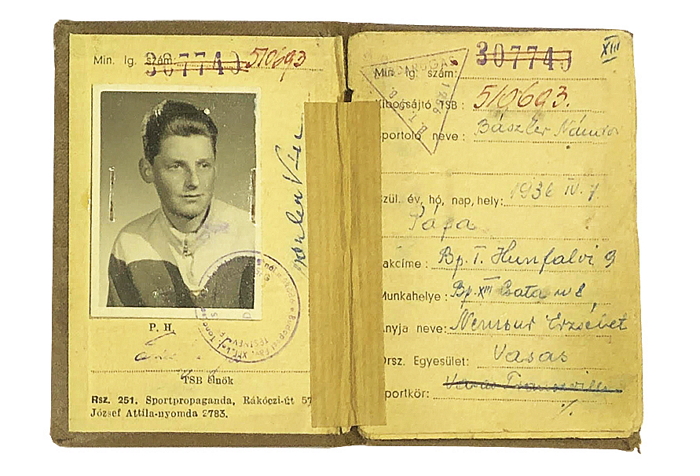 Min. Ig. szám: 307740 510693
P. H.
TSB elnök
Rsz. 251. Sportpropaganda, Rákóczi-út 57
József Attila-nyomda 2783.
XIII
Min. Ig. szám: 307740
Kibocsájtó TSB: 510693.
Sportoló neve: Bászler Nándor
Szül. év, hó, nap, hely: 1936 IV. 7
Pápa
Lakcíme: Bp. T. Hunfalvi 9
Munkahelye: Bp. XIII Csata u 8
Anyja neve: Erzsébet
Orsz. Egyesület: Vasas
Sportkör: